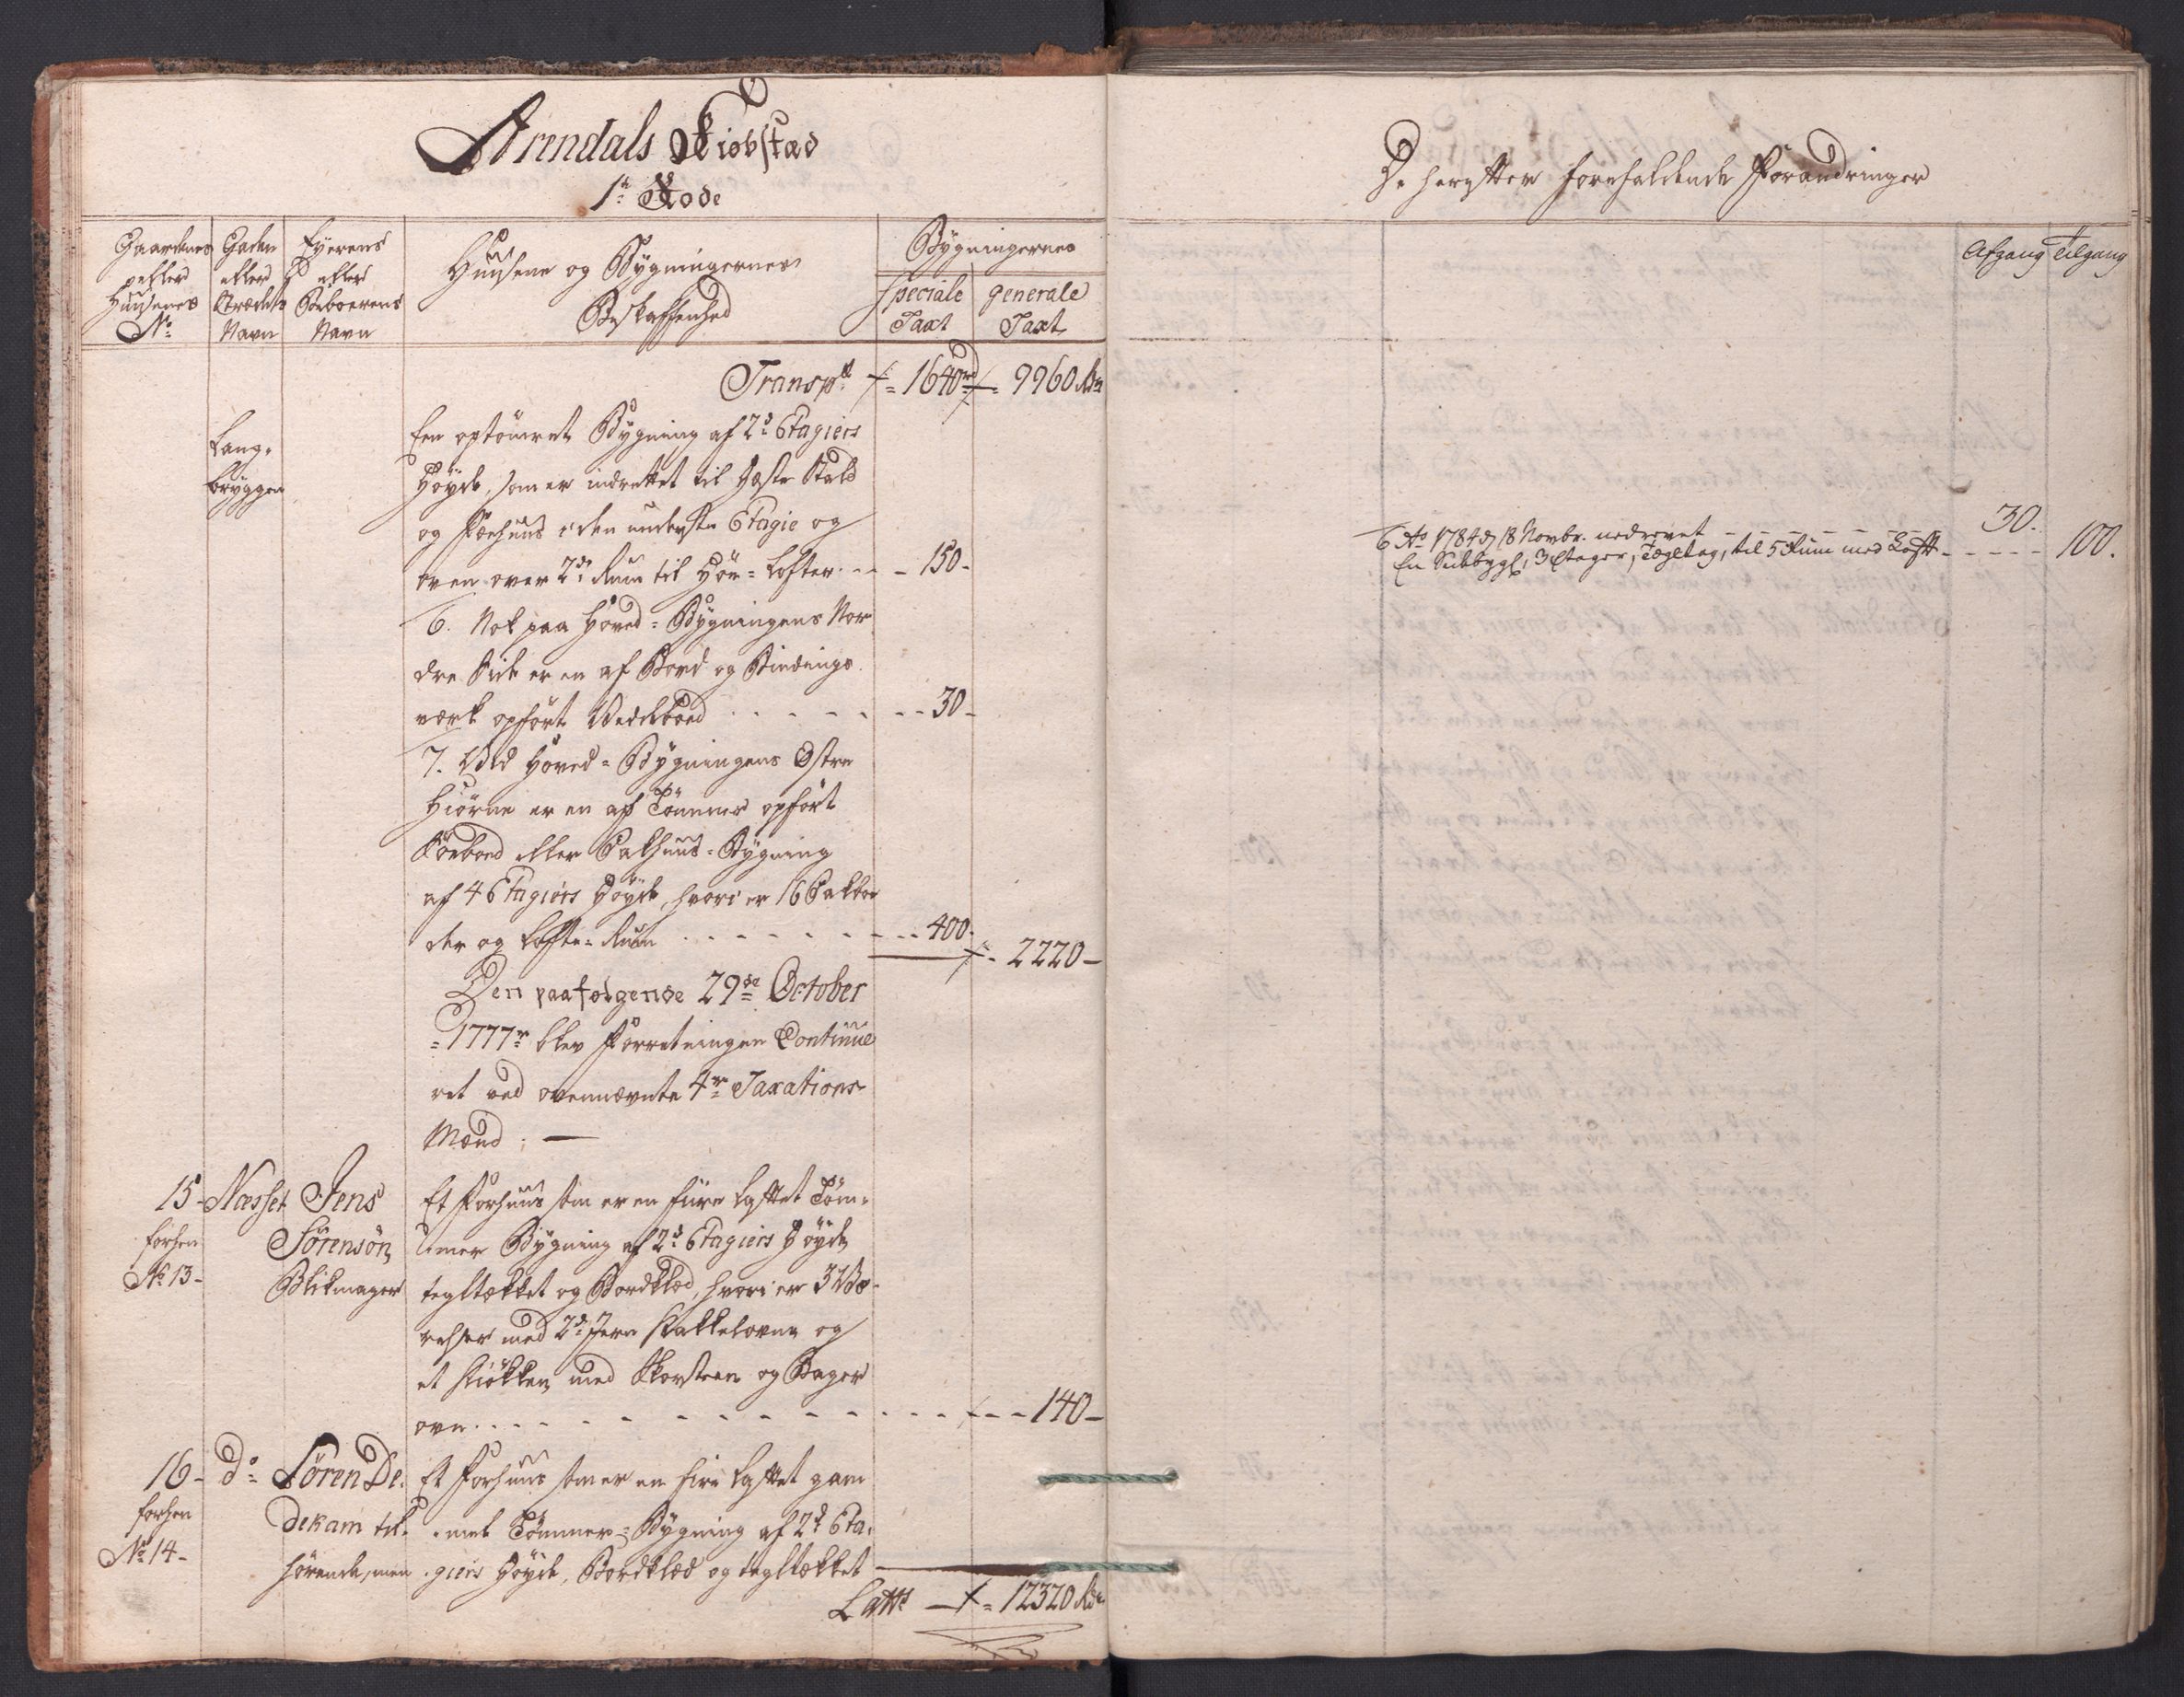 Arendals Kiøbstæd
1te Rode
Gaardenes
eller
Huusenes
No
Gaden
eller
Strædets
Navn
Eyerens
eller
Beboerens
Navn
Huusene og Bygningernes
Beskaffenhed
Bygningernes
speciale
Taxt
generale
Taxt
Transpt 1640 rd 9960 Rdr
Lang-
bryggen
Een optömret Bygning af 2de Etagiers
Höyde, som er indrettet til Heste Stald
og Fæehuus i den underste Etagie og
oven over 2de Rum til Höe-Lofter - - - 150 -
6. Nok paa Hoved-Bygningens Nor
dre Side er en af Bord og Bindings
værk opfört Vedeboed - - - - - 30 -
7. Ved Hoved-Bygningens Østre
Hiörne er en af Tömmer opfört
Söeboed eller Pakhuus-Bygning
af 4 Etagiers Höyde, hvori er 16 Pakboe
der og Lofte-Rum - - - - - 400 -
2220 -
Den paafølgende 29de October
1777r blev Forretningen Continue
ret ved ovennævnte 4re Taxations
Mænd. —
15 - Næsset Jens
forhen
No 13 -
Sörensön
Blikmager
Et Forhuus som er en fiire Lastet Töm-
mer Bygning af 2de Etagiers Höyde
tegltækket og Bordklæd, hvori er 3 Væ-
relser med 2de Jern Kakkelovne og
et Kiökken med Skorsteen og Bager
ovn - - - - - - 140 -
16 - do Sören De-
forhen
No 14 -
dekam til-
hörende, men
Et Forhuus som er en fiire Lastet gam
mel Tömmer-Bygning af 2de Eta-
giers Höyde, Bordklæd og tegltækket
Latus 12320 Rdr
De herefter forefaldende Forandringer
Afgang Tilgang
6 Ao 1784 d 18 Novbr. nedrevet - - - - - 30.
En Siidebygn., 3 Etager, Tegltag, til 5 Rum med Loft - - - - - 100.